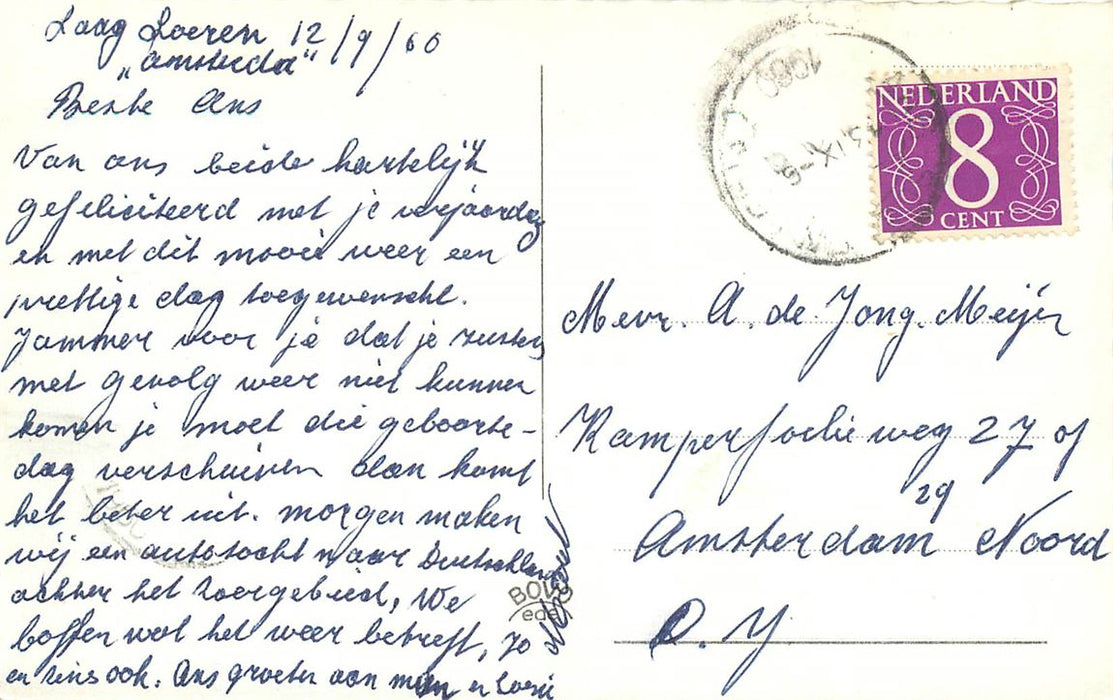 Laag Soeren 12/9/60
"Amsterda"
Beste Ans
Van ons beide hartelijk
gefeliciteerd met je verjaardag
en met dit mooie weer een
prettige dag toegewenscht.
Jammer voor je dat je zusters
met gevolg weer niet kunnen
komen je moet die geboorte-
dag verschuiven dan komt
het beter uit. morgen maken
wij een autotocht naar Duitschland
achter het Roergebied, We
boffen wat het weer betreft, Jo
en Rins ook. Ans groeten aan
NEDERLAND
8
CENT
Mevr. A. de Jong-Meijer
Kamperfoelieweg 27 of
29
Amsterdam Noord
BOVO
ede